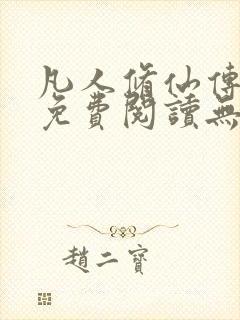 凡人脩仙傳
免費閱讀無
趙二寶